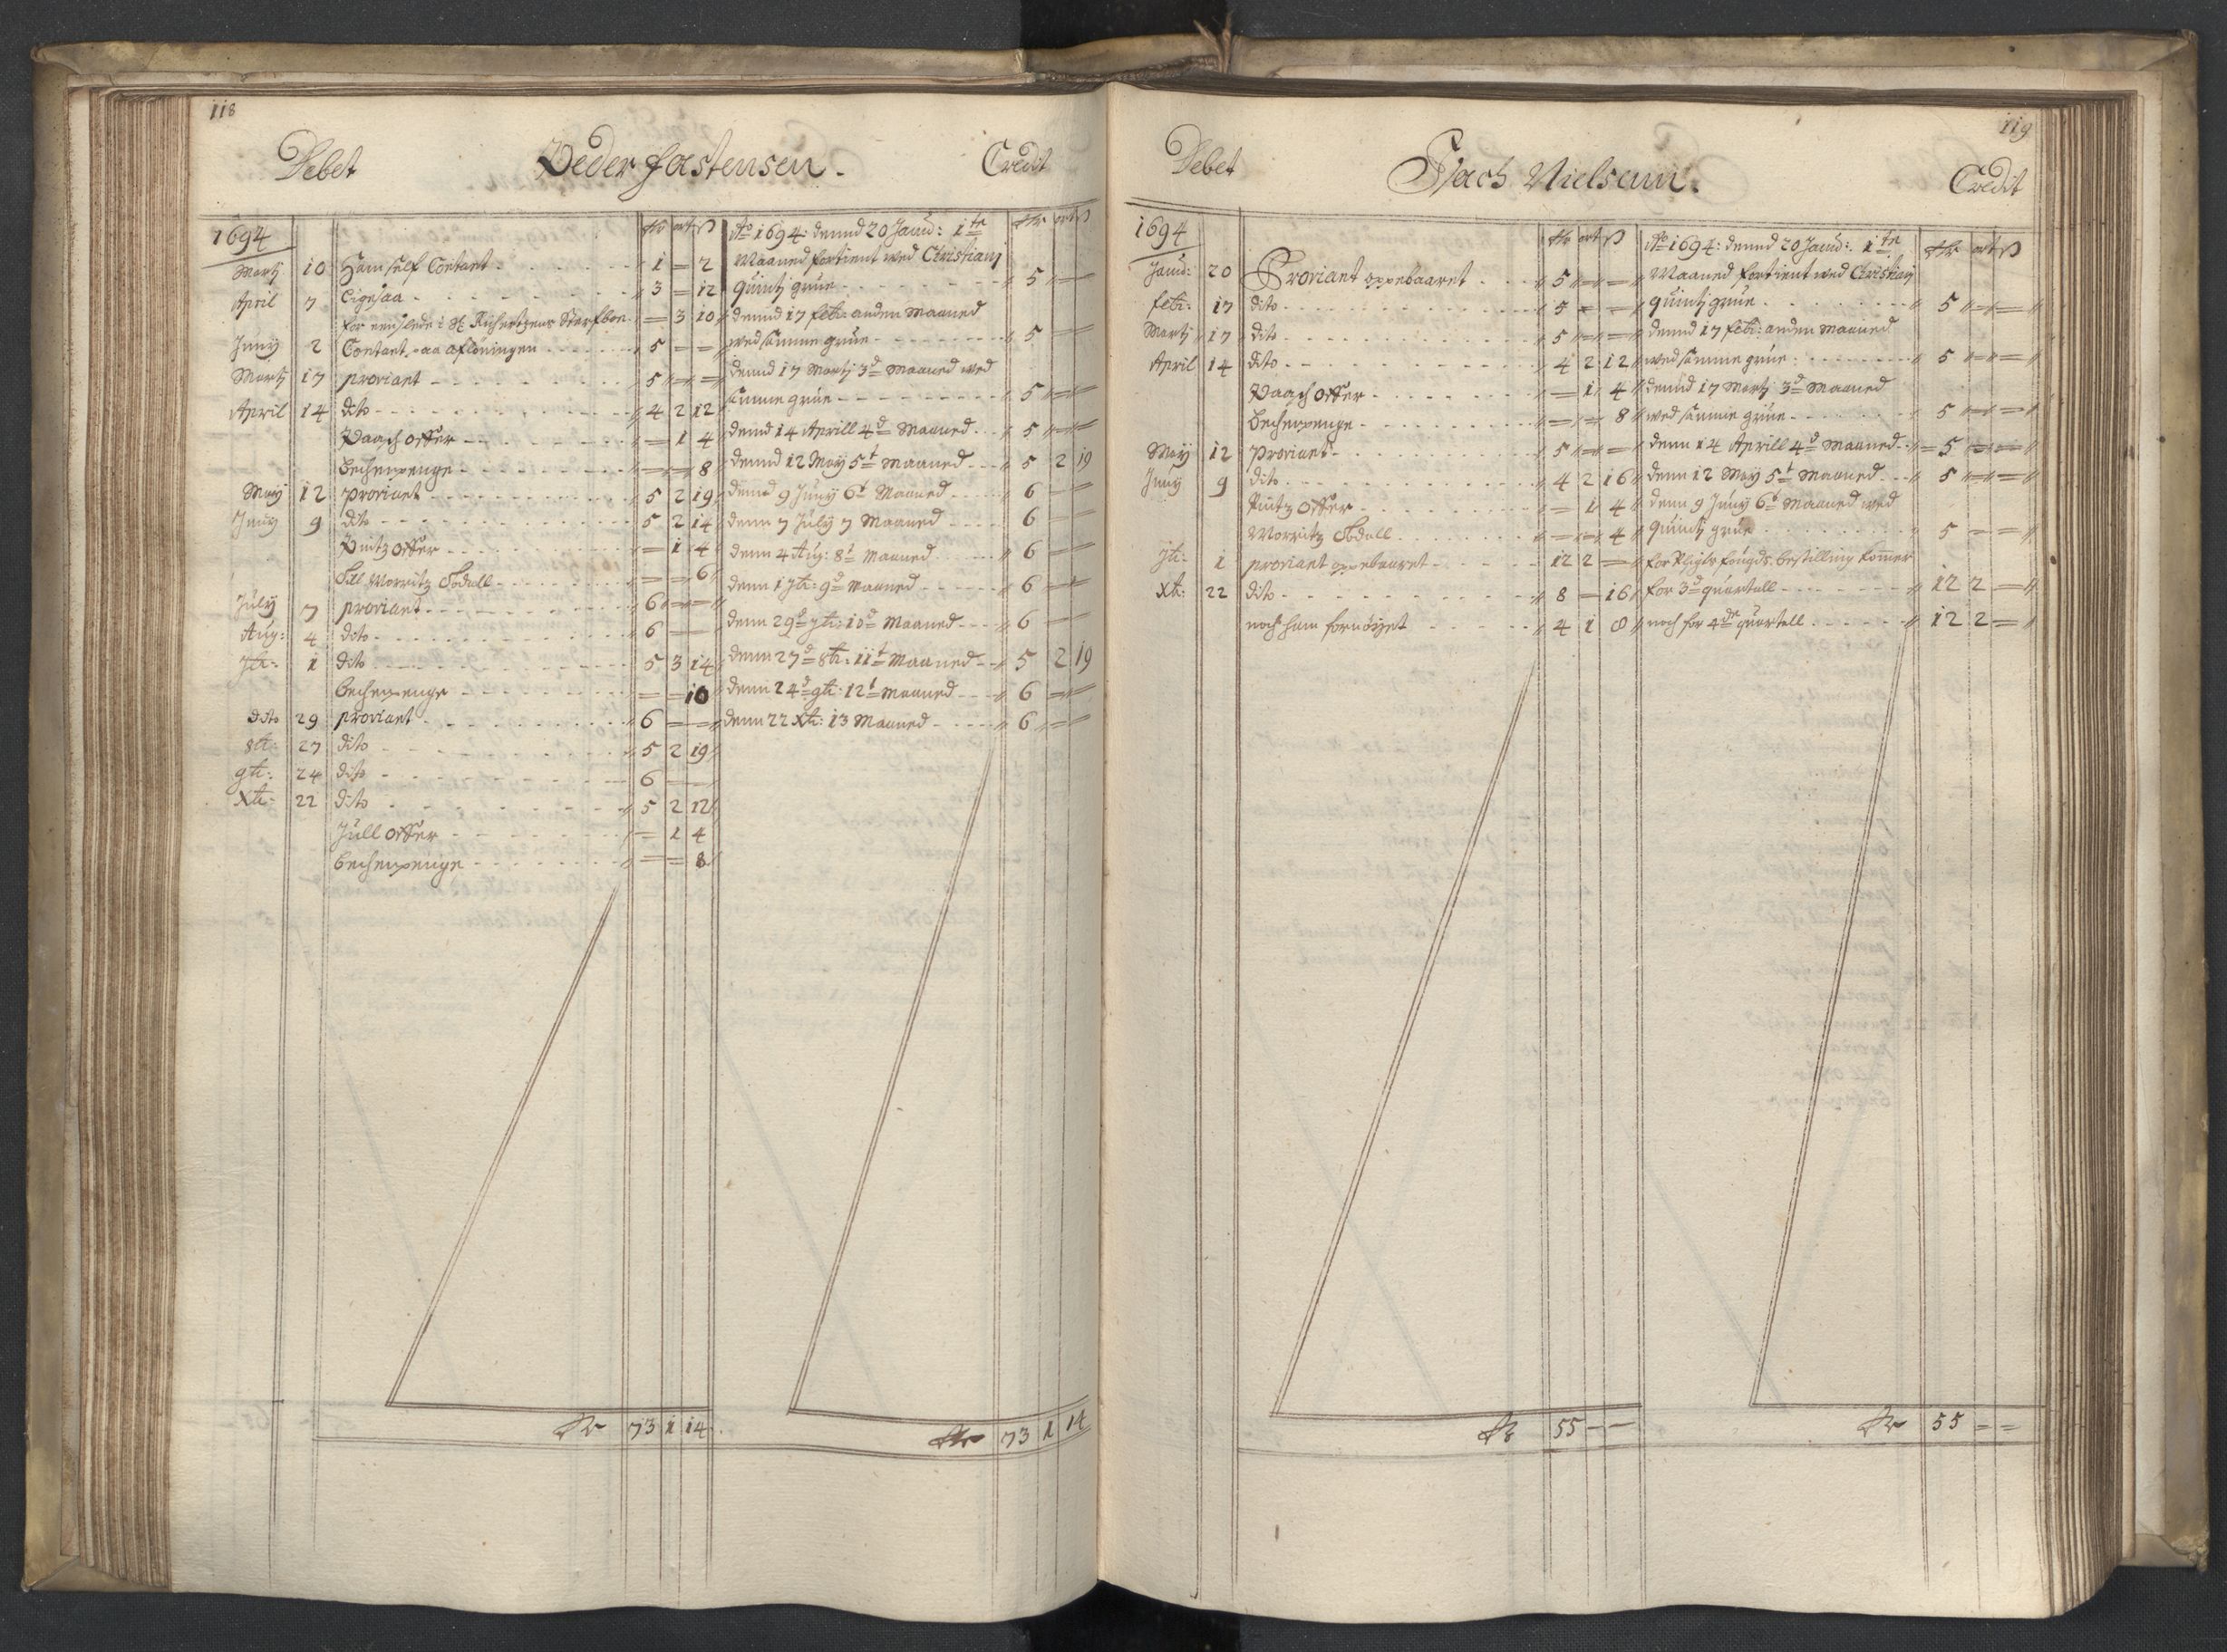 118
Debet Peder fastensen. Credit
1694 rdr ort ß
Martj 10 Ham self Contant 1 = 2
April 7 Ligesaa 3 = 12
for een slede i Sterfboe = 3 10
Juny 2 Contant paa aflöningen 5 = =
Martj 17 proviant 5 = =
April 14 dito 4 2 12
Paasch offer = 1 4
Bechenpenge = = 8
May 12 proviant 5 2 19
Juny 9 dito 5 2 14
Pintz offer = 1 4
Till Morritz Sodall = = 6
July 7 proviant 6 = =
Aug: 4 dito 6 = =
7b: 1 dito 5 3 14
bechenpenge = = 10
dito 29 proviant 6 = =
8b: 27 dito 5 2 19
9b: 24 dito 6 = =
Xb: 22 dito 5 2 12
Jull offer = 1 4
bechenpenge = = 8
Rdr 73 1 14
rdr ort ß
Ao 1694: dennd 20 Janu: 1te
Maaned fortient wed Christianj
quintj grue 5 = =
dennd 17 feb: anden Maaned
wed samme grue 5 = =
dennd 17 Martj 3d Maaned wed
samme grue 5 = =
dennd 14 Aprill 4d Maaned 5 = =
dennd 12 May 5t Maaned 5 2 19
dennd 9 Juny 6t Maaned 6 = =
denn 7 July 7 Maaned 6 = =
denn 4 Aug: 8t Maaned 6 = =
denn 1 7b: 9d Maaned 6 = =
denn 29d 7b: 10d Maaned 6 = =
denn 27d 8b: 11t Maaned 5 2 19
denn 24d 9b: 12t Maaned 6 = =
denn 22 Xb: 13 Maaned 6 = =
Rdr 73 1 14
119
Debet Nielsenn. Credit
1694 rdr ort ß
Janu: 20 Proviant oppebaaret 5 = =
feb: 17 dito 5 = =
Martj 17 dito 5 = =
April 14 dito 4 2 12
Paasch offer = 1 4
Bechenpenge = = 8
May 12 proviant 5 = =
Juny 9 dito 4 2 16
Pintz offer = 1 4
Morritz Sodall = = 4
7b: 1 proviant oppebaaret 12 2 =
Xb: 22 dito 8 = 16
noch ham fornöyet 4 1 8
Rdr 55 - -
rdr ort ß
Ao 1694: dennd 20 Janu: 1te
Maaned fortient wed Christianj
quintj grue 5 = =
dennd 17 feb: anden Maaned
wed samme grue 5 = =
dennd 17 Martj 3d Maaned
wed samme grue 5 = =
denn 14 Aprill 4d Maaned 5 = =
denn 12 May 5t Maaned 5 = =
denn 9 Juny 6t Maaned wed
quintj grue 5 = =
for fougds bestilling kommer
for 3d quartall 12 2 =
noch for 4de quartall 12 2 =
Rdr 55 = =